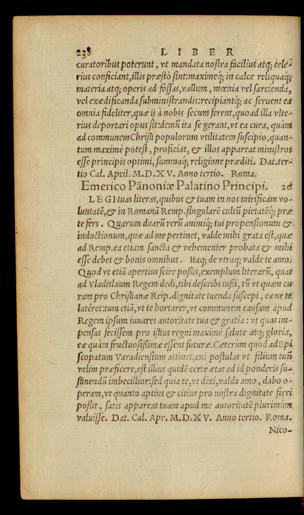 238 LIBER
curatoribus poterunt, vt mandata nostra facilius atq; cele-
rius conficiant, illis præstò sint: maximeq; in calce reliquaq;
materia atq; operis ad fossas, vallum, mœnia vel sarcienda,
vel exædificanda subministrandis: recipiantq; ac seruent ea
omnia fideliter, quæ ij à nobis secum ferent, quoad illa vlte-
rius deportari opus sit: demū ita se gerant, vt ea cura, quàm
ad communem Christi populorum vtilitatem suscipio, quan-
tum maximè potest, proficiat, & illos appareat ministros
esse principis optimi, summaq; religione præditi. Dat. ter-
tio Cal. April. M.D.XV. Anno tertio. Roma.
Emerico Pānoniæ Palatino Principi. 26
LEGI tuas literas, quibus & tuam in nos mirificam vo-
luntatē, & in Romanā Remp. singularē cultū pietatēq; præ
te fers. Quarum duarū rerū animiq; tui propensionum &
inductionum, quæ ad me pertinet, valde mihi grata est, quæ
ad Remp. ea etiam sancta & vehementer probata & mihi
esse debet & bonis omnibus. Itaq; de vtraq; valde te amo.
Quod vt etiā apertius scire posses, exemplum literarū, quas
ad Vladislaum Regem dedi, tibi describi iussi, tū vt quam cu-
ram pro Christianæ Reip. dignitate tuenda suscepi, ea ne te
lateret: tum etiā, vt te hortarer, vt communem causam apud
Regem ipsum iuuares autoritate tua & gratia: vt quas im-
pensas fecissem pro istius regni maximè salute atq; gloria,
eæ quàm fructuosissimæ essent futuræ. Cæterùm quod ad Epi
scopatum Varadiensium attinet, cui postulas vt filium tuū
velim præficere, est illius quidē certè ætas ad id ponderis su-
stinendū imbecillior: sed quia te, vt dixi, valde amo, dabo o-
peram, vt quanto aptius & citius pro nostra dignitate fieri
possit, satis appareat tuam apud me autoritatē plurimùm
valuisse. Dat. Cal. Apr. M.D.XV. Anno tertio. Roma.
Nico-